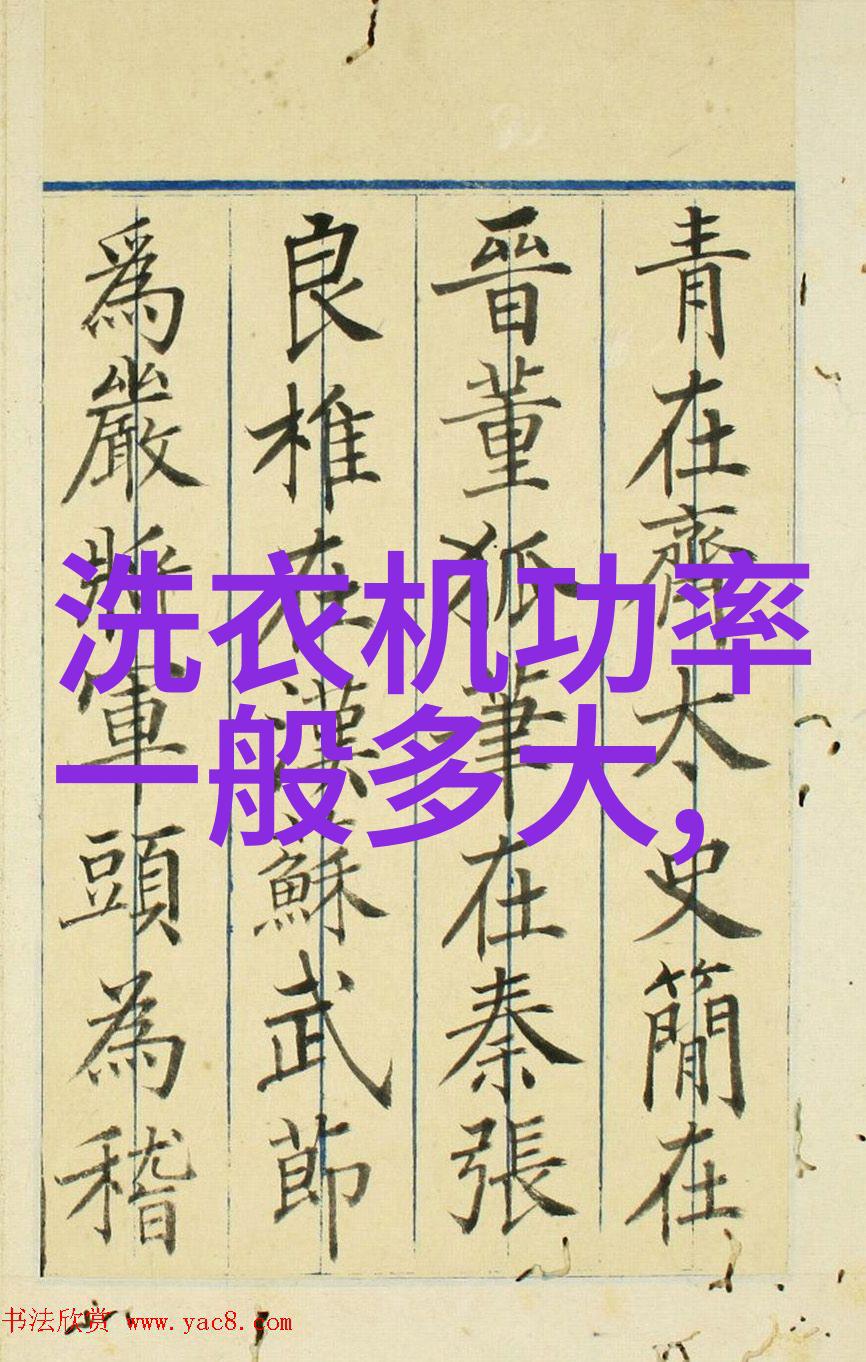 青在齊太史簡在
晉董狐筆在秦張
良椎在漢蘇武節
爲嚴將軍頭為嵇
洗衣机功率
一般多大,
书法欣赏 www.yac8.com